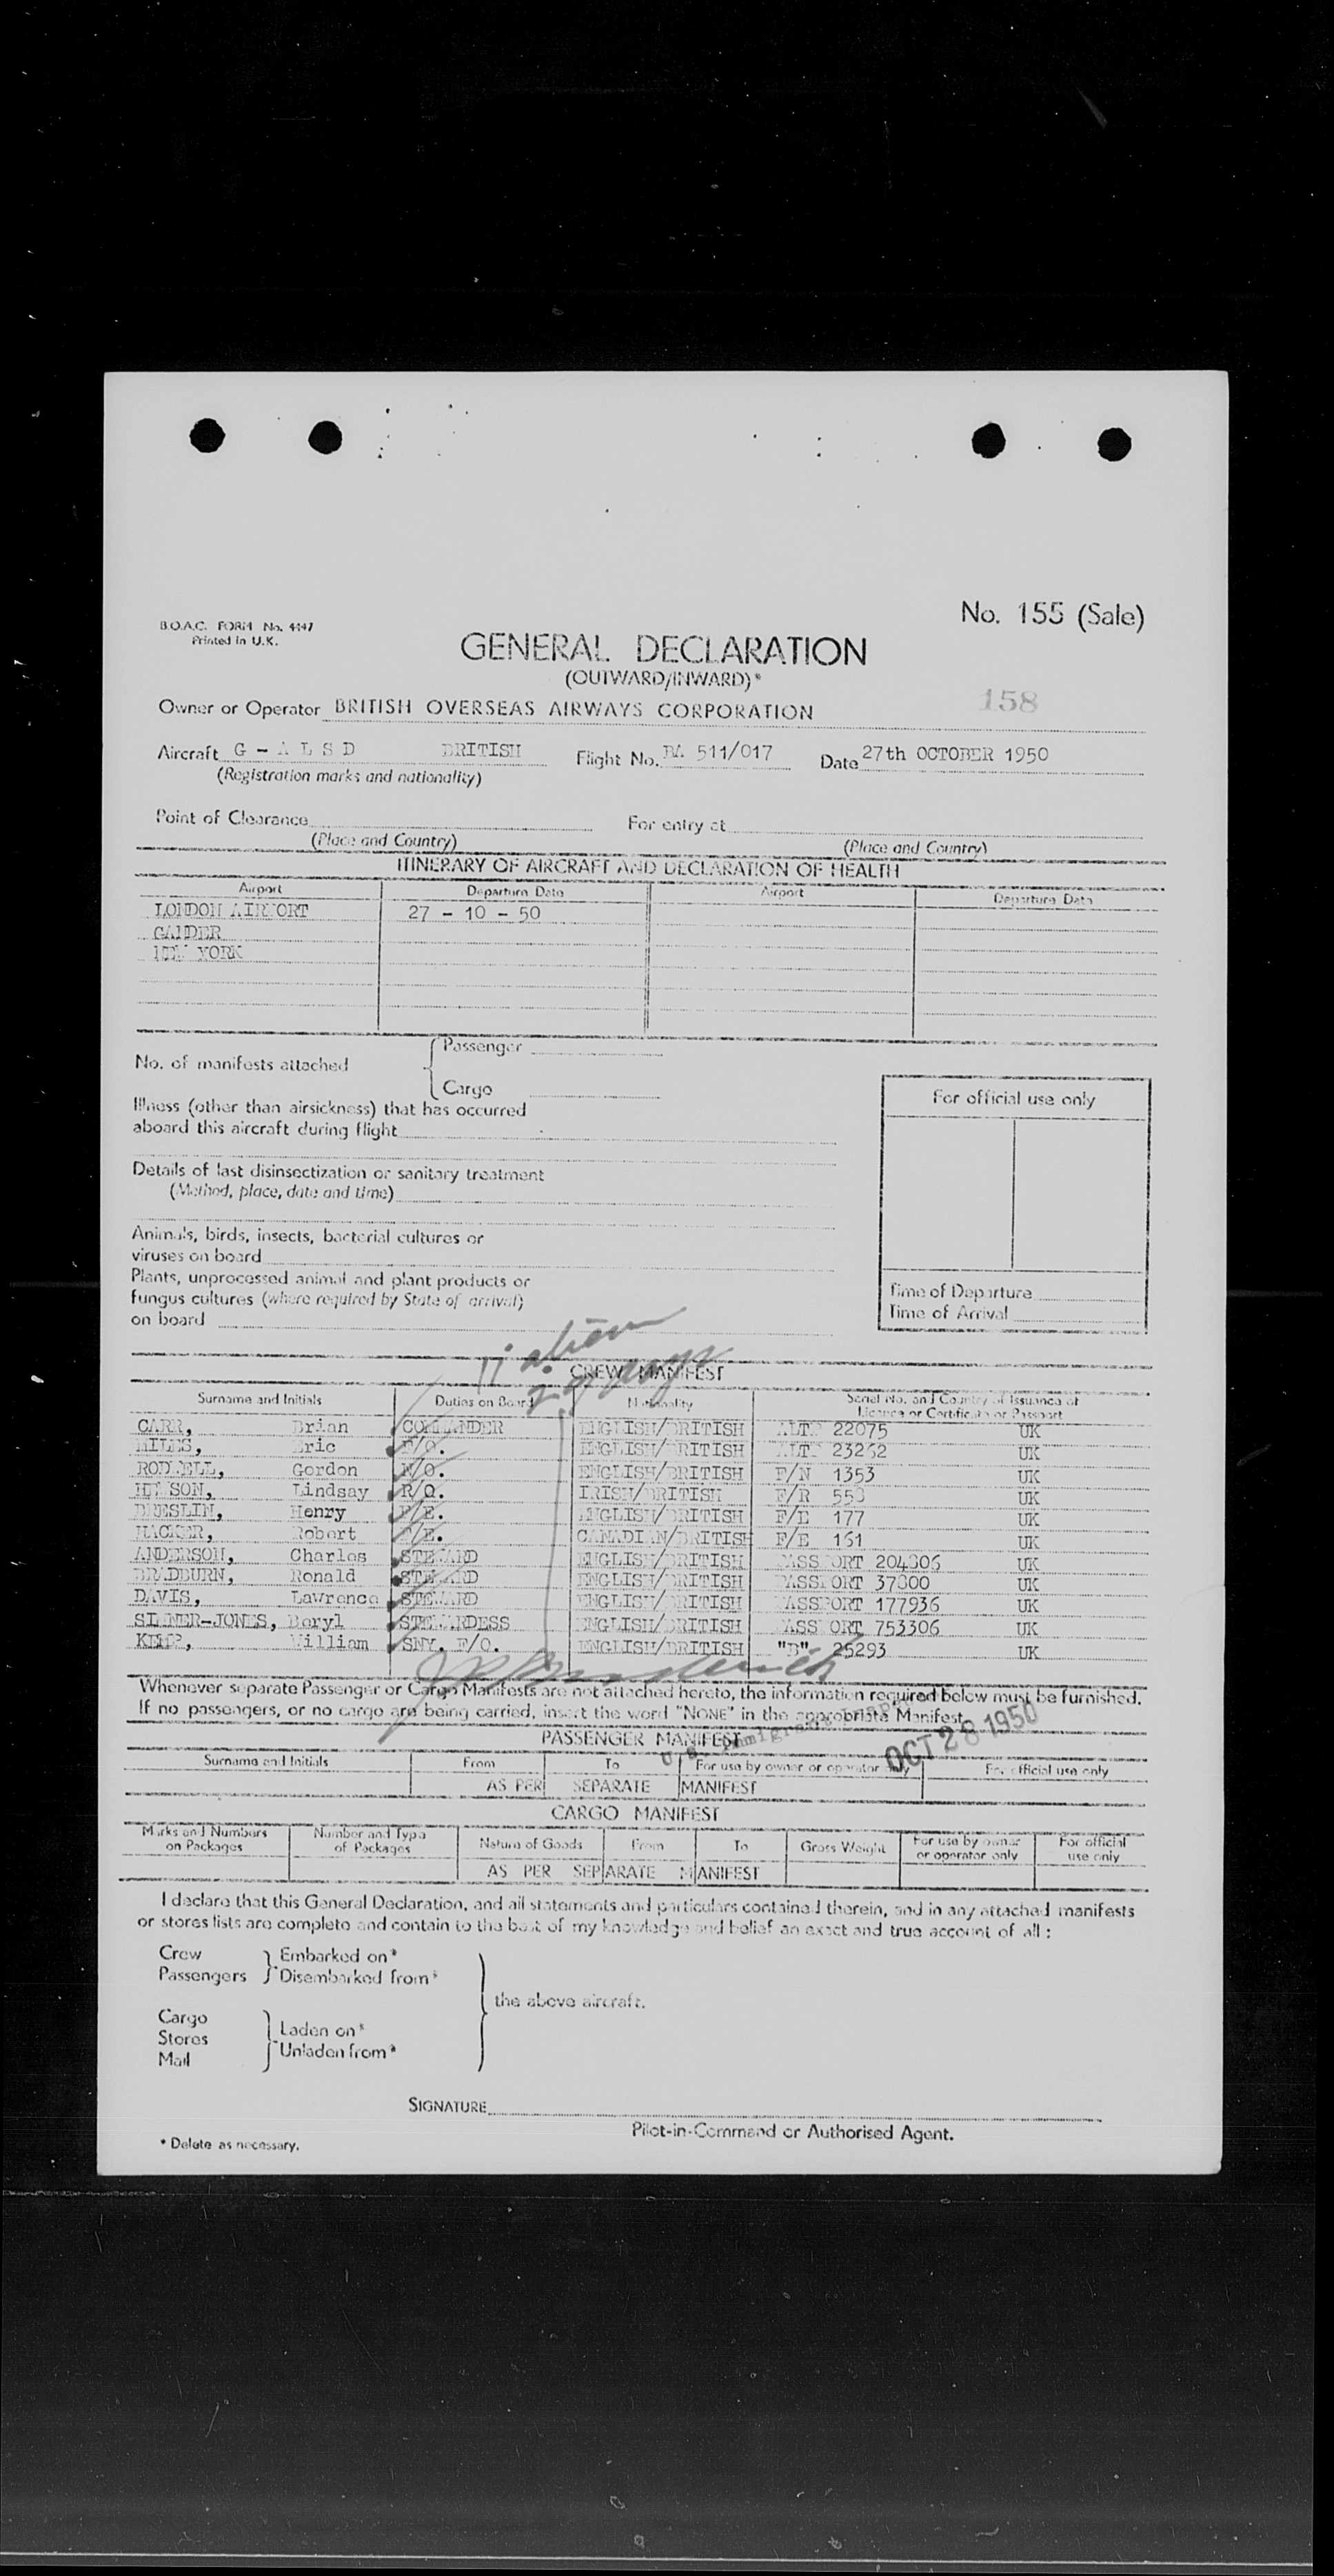 No. 155 (Sale)
B.O.A.C. FORM No. 4447
Printed in U.K.
GENERAL DECLARATION
(OUTWARD/INWARD)*
158
Owner or Operator BRITISH OVERSEAS AIRWAYS CORPORATION
Aircraft G - A L S D BRITISH Flight No. BA 511/017 Date 27th OCTOBER 1950
(Registration marks and nationality)
Point of Clearance For entry at
(Place and Country) (Place and Country)
ITINERARY OF AIRCRAFT AND DECLARATION OF HEALTH
Airport Departure Date Airport Departure Date
LONDON AIRPORT 27 - 10 - 50
GANDER
NEW YORK
No. of manifests attached { Passenger
Cargo
For official use only
Illness (other than airsickness) that has occurred
aboard this aircraft during flight
Details of last disinsectization or sanitary treatment
(Method, place, date and time)
Animals, birds, insects, bacterial cultures or
viruses on board
Plants, unprocessed animal and plant products or
fungus cultures (where required by State of arrival)
on board
Time of Departure
Time of Arrival
11 aliens
CREW MANIFEST
Surname and Initials Duties on Board Nationality Serial No. and Country of Issuance of
Licence or Certificate or Passport
CARR, Brian COMMANDER ENGLISH/BRITISH ALTP 22075 UK
MILES, Eric F/O. ENGLISH/BRITISH ALTP 23252 UK
RODWELL, Gordon N/O. ENGLISH/BRITISH F/N 1353 UK
Lindsay R/O. IRISH/BRITISH F/R UK
BRESLIN, Henry F/E. ENGLISH/BRITISH F/E 177 UK
HACKER, Robert F/E. CANADIAN/BRITISH F/E 161 UK
ANDERSON, Charles STEWARD ENGLISH/BRITISH PASSPORT 204806 UK
BRADBURN, Ronald STEWARD ENGLISH/BRITISH PASSPORT 37800 UK
DAVIS, LaWrence STEWARD ENGLISH/BRITISH PASSPORT 177936 UK
Beryl STEWARDESS ENGLISH/BRITISH PASSPORT 753306 UK
KEMP, William SNY. F/O. ENGLISH/BRITISH "B" 25293 UK
Whenever separate Passenger or Cargo Manifests are not attached hereto, the information required below must be furnished.
If no passengers, or no cargo are being carried, insert the word "NONE" in the appropriate Manifest.
OCT 28 1950
PASSENGER MANIFEST
Surname and Initials From To For use by owner or operator only For official use only
AS PER SEPARATE MANIFEST
CARGO MANIFEST
Marks and Numbers on Packages Number and Type of Packages Nature of Goods From To Gross Weight For use by owner or operator only For official use only
AS PER SEPARATE MANIFEST
I declare that this General Declaration, and all statements and particulars contained therein, and in any attached manifests
or stores lists are complete and contain to the best of my knowledge and belief an exact and true account of all :
Crew } Embarked on*
Passengers } Disembarked from*
the above aircraft.
Cargo
Stores } Laden on*
Mail } Unladen from*
SIGNATURE
Pilot-in-Command or Authorised Agent.
* Delete as necessary.